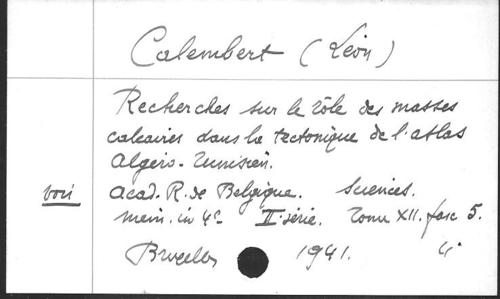 Calembert (Léon)
Recherches sur le rôle des masses
calcaires dans la tectonique de l'atlas
Algéro-Tunisien.
voir Acad. R. de Belgique. Sciences.
Mém. in 4° II série. Tome XII. fasc 5.
Bruxelles 1941.